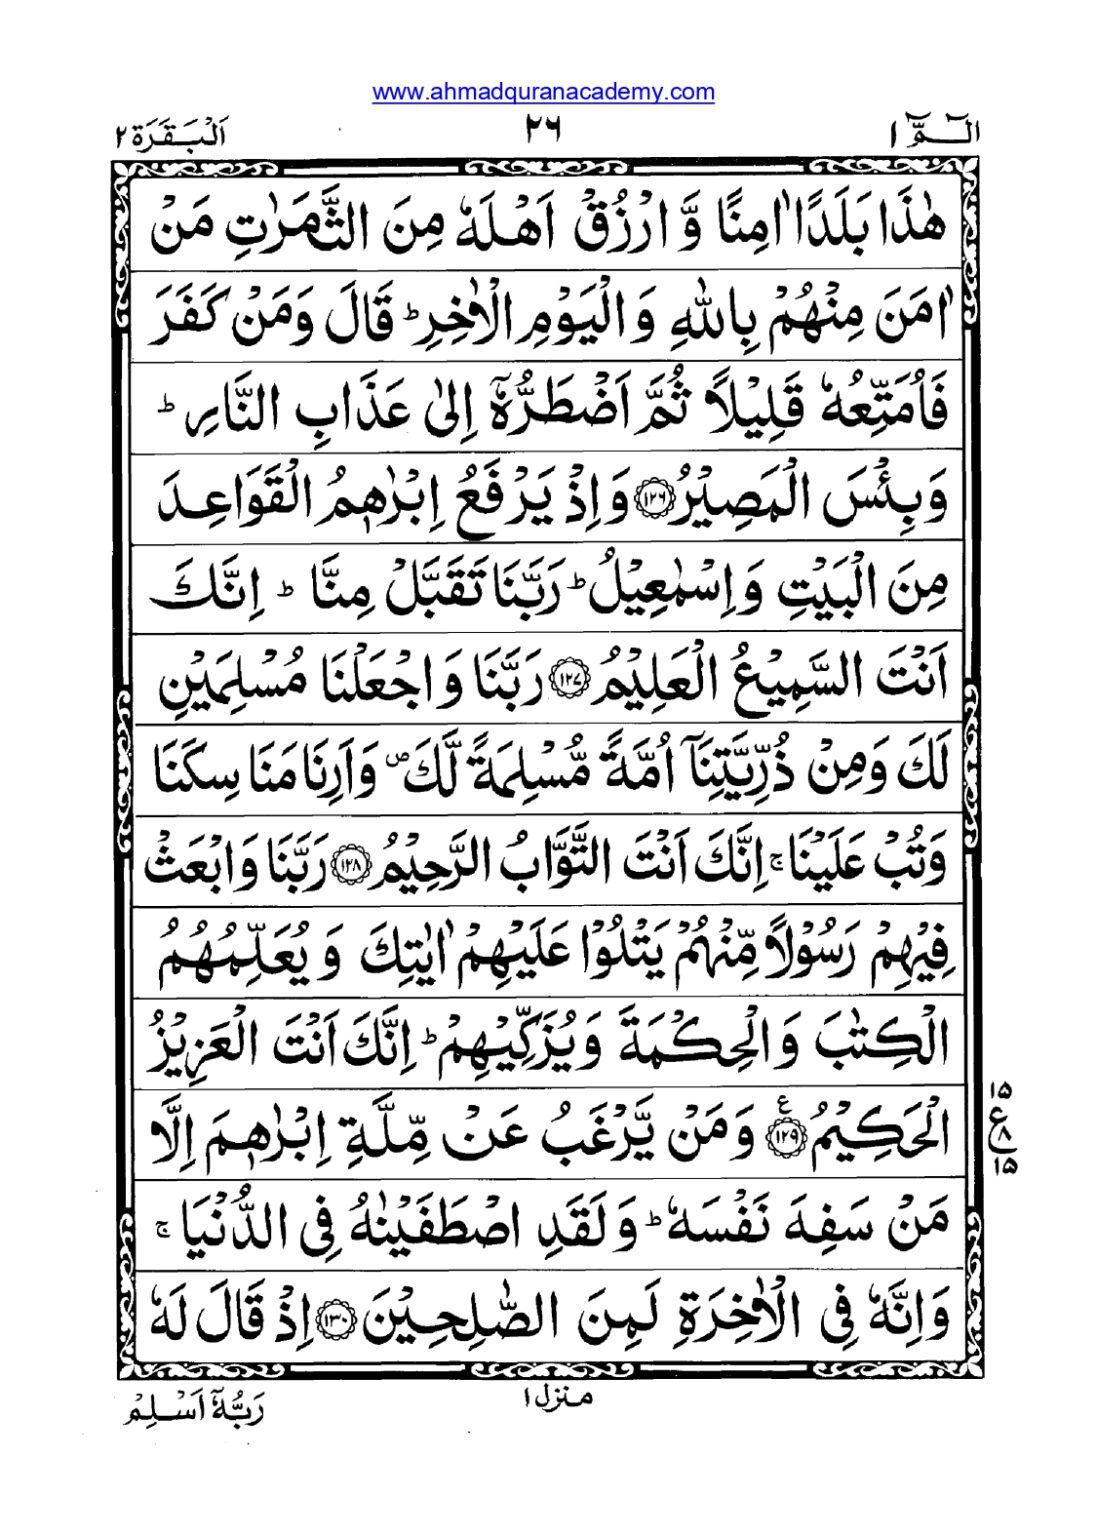 www.ahmadquranacademy.com
الٓـمّٓ ١
٢٦
اَلْبَقَرَة ٢
هٰذَا بَلَدًا اٰمِنًا وَّ ارْزُقْ اَهْلَهٗ مِنَ الثَّمَرٰتِ مَنْ
اٰمَنَ مِنْهُمْ بِاللّٰهِ وَ الْيَوْمِ الْاٰخِرِ ؕ قَالَ وَمَنْ كَفَرَ
فَاُمَتِّعُهٗ قَلِيْلًا ثُمَّ اَضْطَرُّهٗۤ اِلٰى عَذَابِ النَّارِ ؕ
وَ بِئْسَ الْمَصِيْرُ ۝١٢٦ وَ اِذْ يَرْفَعُ اِبْرٰهٖمُ الْقَوَاعِدَ
مِنَ الْبَيْتِ وَ اِسْمٰعِيْلُ ؕ رَبَّنَا تَقَبَّلْ مِنَّا ؕ اِنَّكَ
اَنْتَ السَّمِيْعُ الْعَلِيْمُ ۝١٢٧ رَبَّنَا وَ اجْعَلْنَا مُسْلِمَيْنِ
لَكَ وَمِنْ ذُرِّيَّتِنَاۤ اُمَّةً مُّسْلِمَةً لَّكَ ۪ وَاَرِنَا مَنَاسِكَنَا
وَتُبْ عَلَيْنَا ۚ اِنَّكَ اَنْتَ التَّوَّابُ الرَّحِيْمُ ۝١٢٨ رَبَّنَا وَ ابْعَثْ
فِيْهِمْ رَسُوْلًا مِّنْهُمْ يَتْلُوْا عَلَيْهِمْ اٰيٰتِكَ وَ يُعَلِّمُهُمُ
الْكِتٰبَ وَ الْحِكْمَةَ وَ يُزَكِّيْهِمْ ؕ اِنَّكَ اَنْتَ الْعَزِيْزُ
الْحَكِيْمُ ۝١٢٩ ع وَ مَنْ يَّرْغَبُ عَنْ مِّلَّةِ اِبْرٰهٖمَ اِلَّا
١٥ ع ٨ ١٥
مَنْ سَفِهَ نَفْسَهٗ ؕ وَ لَقَدِ اصْطَفَيْنٰهُ فِى الدُّنْيَا ۚ
وَ اِنَّهٗ فِى الْاٰخِرَةِ لَمِنَ الصّٰلِحِيْنَ ۝١٣٠ اِذْ قَالَ لَهٗ
منزل ١
رَبُّهٗۤ اَسْلِمْ